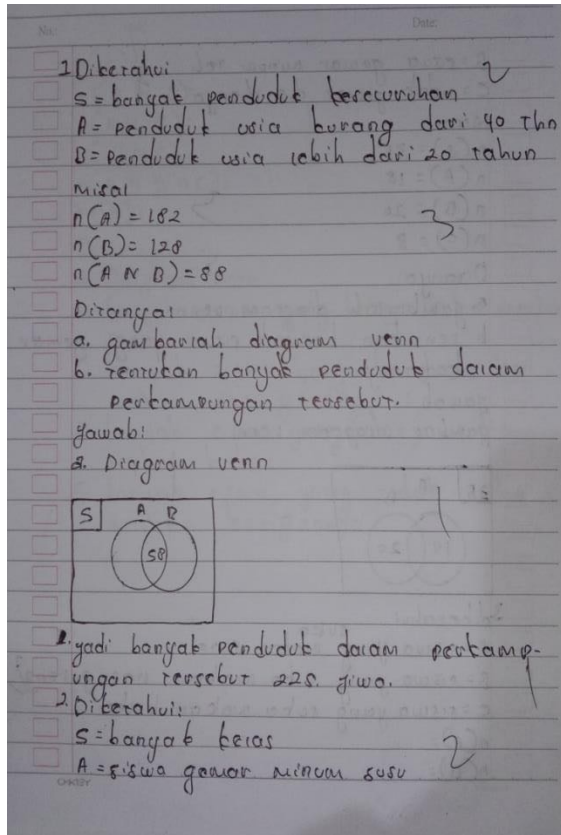 No:
Date:
1 Diketahui 2
S = banyak penduduk keseluruhan
A = Penduduk usia kurang dari 40 Thn
B = Penduduk usia lebih dari 20 tahun
Misal
n(A) = 182 3
n(B) = 128
n(A ∩ B) = 58
Ditanya:
a. gambarlah diagram venn
b. Tentukan banyak penduduk dalam
perkampungan tersebut.
Jawab:
a. Diagram venn 1
S A B
58
jadi banyak penduduk dalam perkamp-
ungan tersebut 225. jiwa.
2. Diketahui:
S = banyak kelas 2
A = siswa gemar minum susu